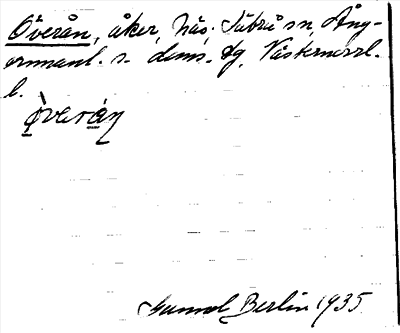 Överån, åker, Näs, Säbrå sn, Ång-
ermanl. s. doms. dg, Västernorrl.
l.
òveràn
Gunvol Berlin 1935